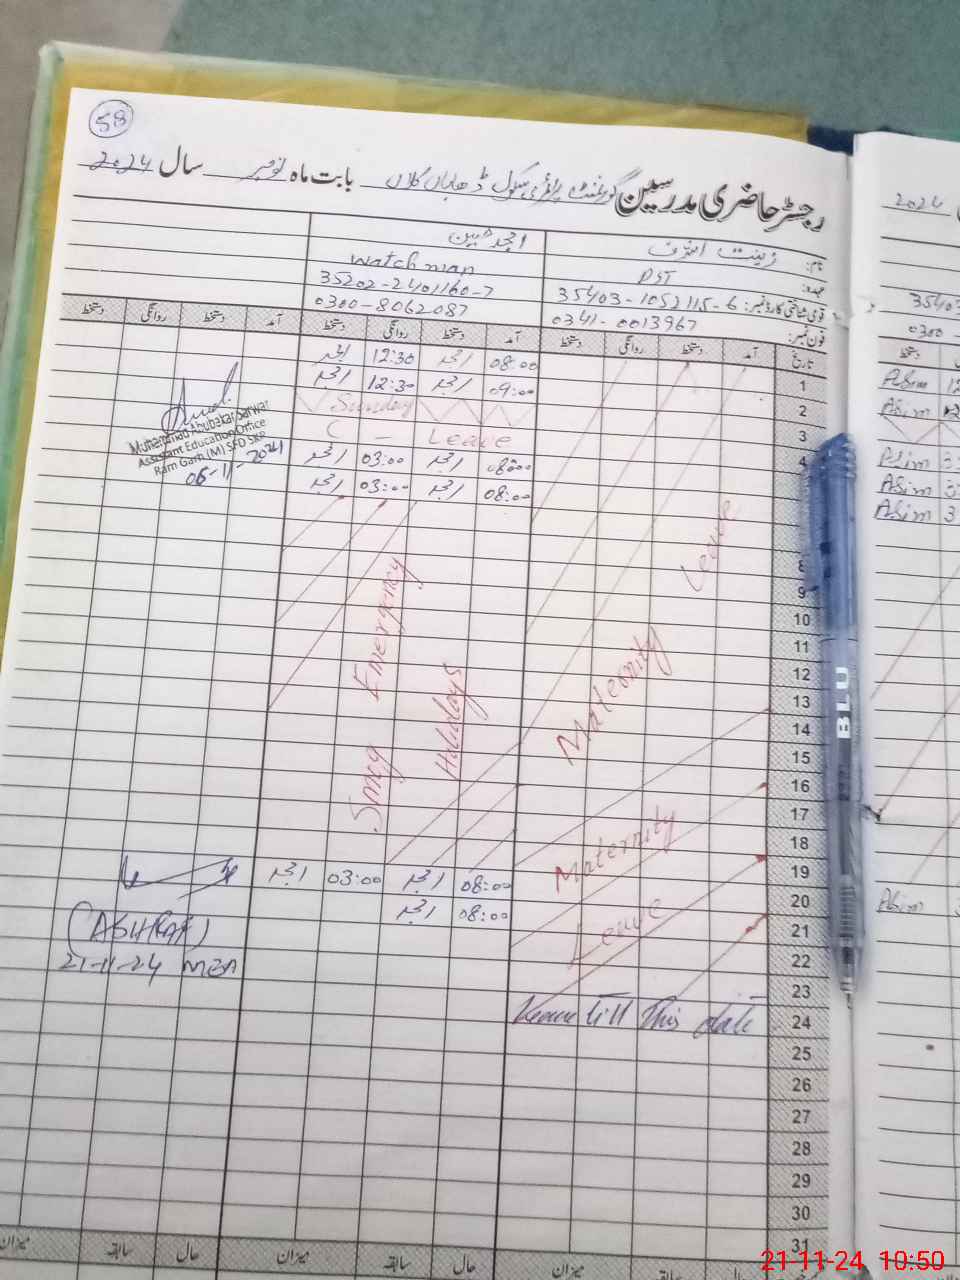 58
رجسٹر حاضری مدرسین گورنمنٹ پرائمری سکول ڈھاباں کلاں بابت ماہ نومبر سال 2024
نام: زینت اشرف امجد حسین
عہدہ: PST Watchman
قومی شناختی کارڈ نمبر: 35403-1052115-6 35202-2401160-7
فون نمبر: 0341-0013967 0300-8062087
تاریخ آمد دستخط روانگی دستخط آمد دستخط روانگی دستخط آمد دستخط روانگی دستخط
1 08:00 امجد 12:30 امجد
2 09:00 امجد 12:30 امجد
3 Sunday
4 Leave
08:00 امجد 03:00 امجد
08:00 امجد 03:00 امجد
Muhammad Abubakar Sarwar
Assistant Education Officer
Ram Garh (M) SFD SKP
06-11-2024
8
9
10
11
12
13
14
15
16
17
18
Smog Emergency Holidays
Maternity Leave
Maternity Leave
19 08:00 امجد 03:00 امجد
20 08:00 امجد
21
22
23
24 Leave till This date
25
26
27
28
29
30
31
(ASHRAF)
21-11-24 MEA
میزان سابقہ حال میزان سابقہ حال میزان سابقہ حال
BLU
2024
35403
0300
دستخط
Asim 12
Asim
Asim 3
Asim 3
Asim 3
Asim 3
21-11-24 10:50